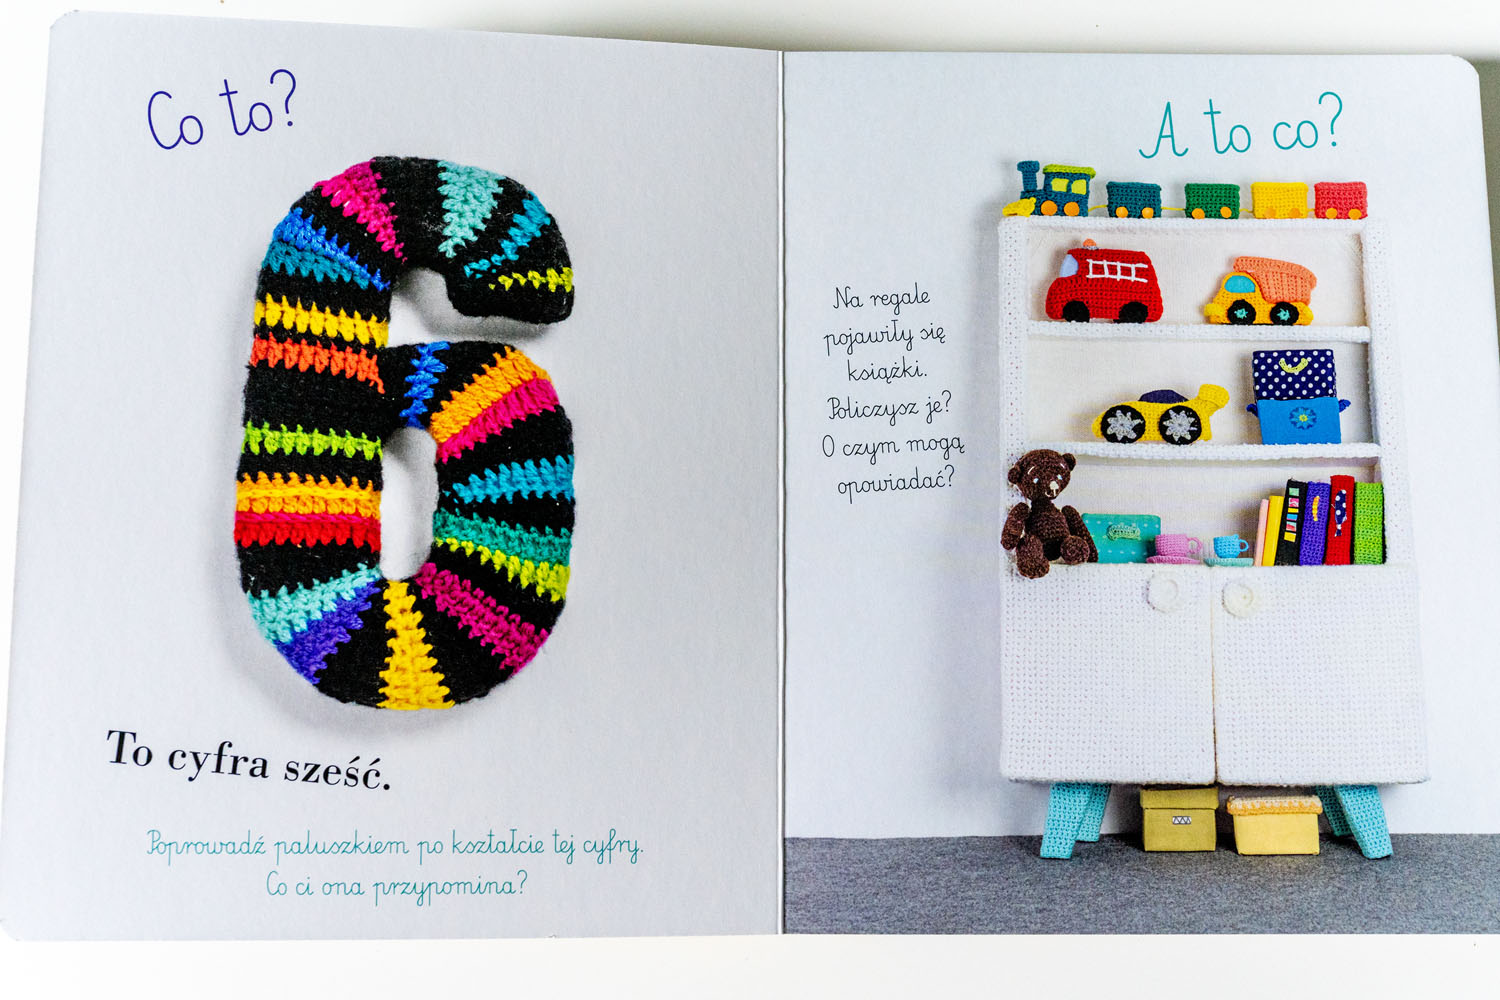 Co to?
To cyfra sześć.
Poprowadź paluszkiem po kształcie tej cyfry.
Co ci ona przypomina?
A to co?
Na regale
pojawiły się
książki.
Policzysz je?
O czym mogą
opowiadać?